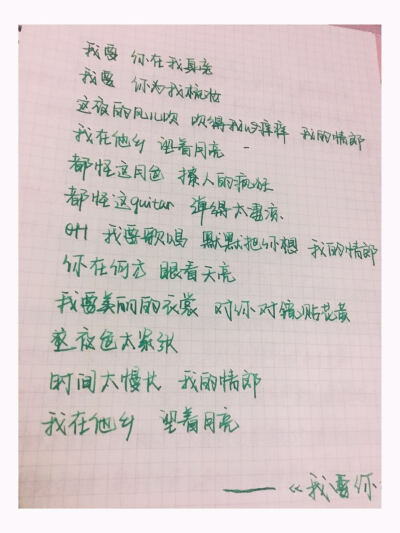 我要 你在我身旁
我要 你为我梳妆
这夜的风儿吹 吹得我心痒痒 我的情郎
我在他乡 望着月亮
都怪这月色 撩人的疯狂
都怪这guitar 弹得太凄凉
OH 我要歌唱 默默把你想 我的情郎
你在何方 眼看天亮
我要美丽的衣裳 对你对镜贴花黄
这夜色太紧张
时间太慢长 我的情郎
我在他乡 望着月亮
——《我要你